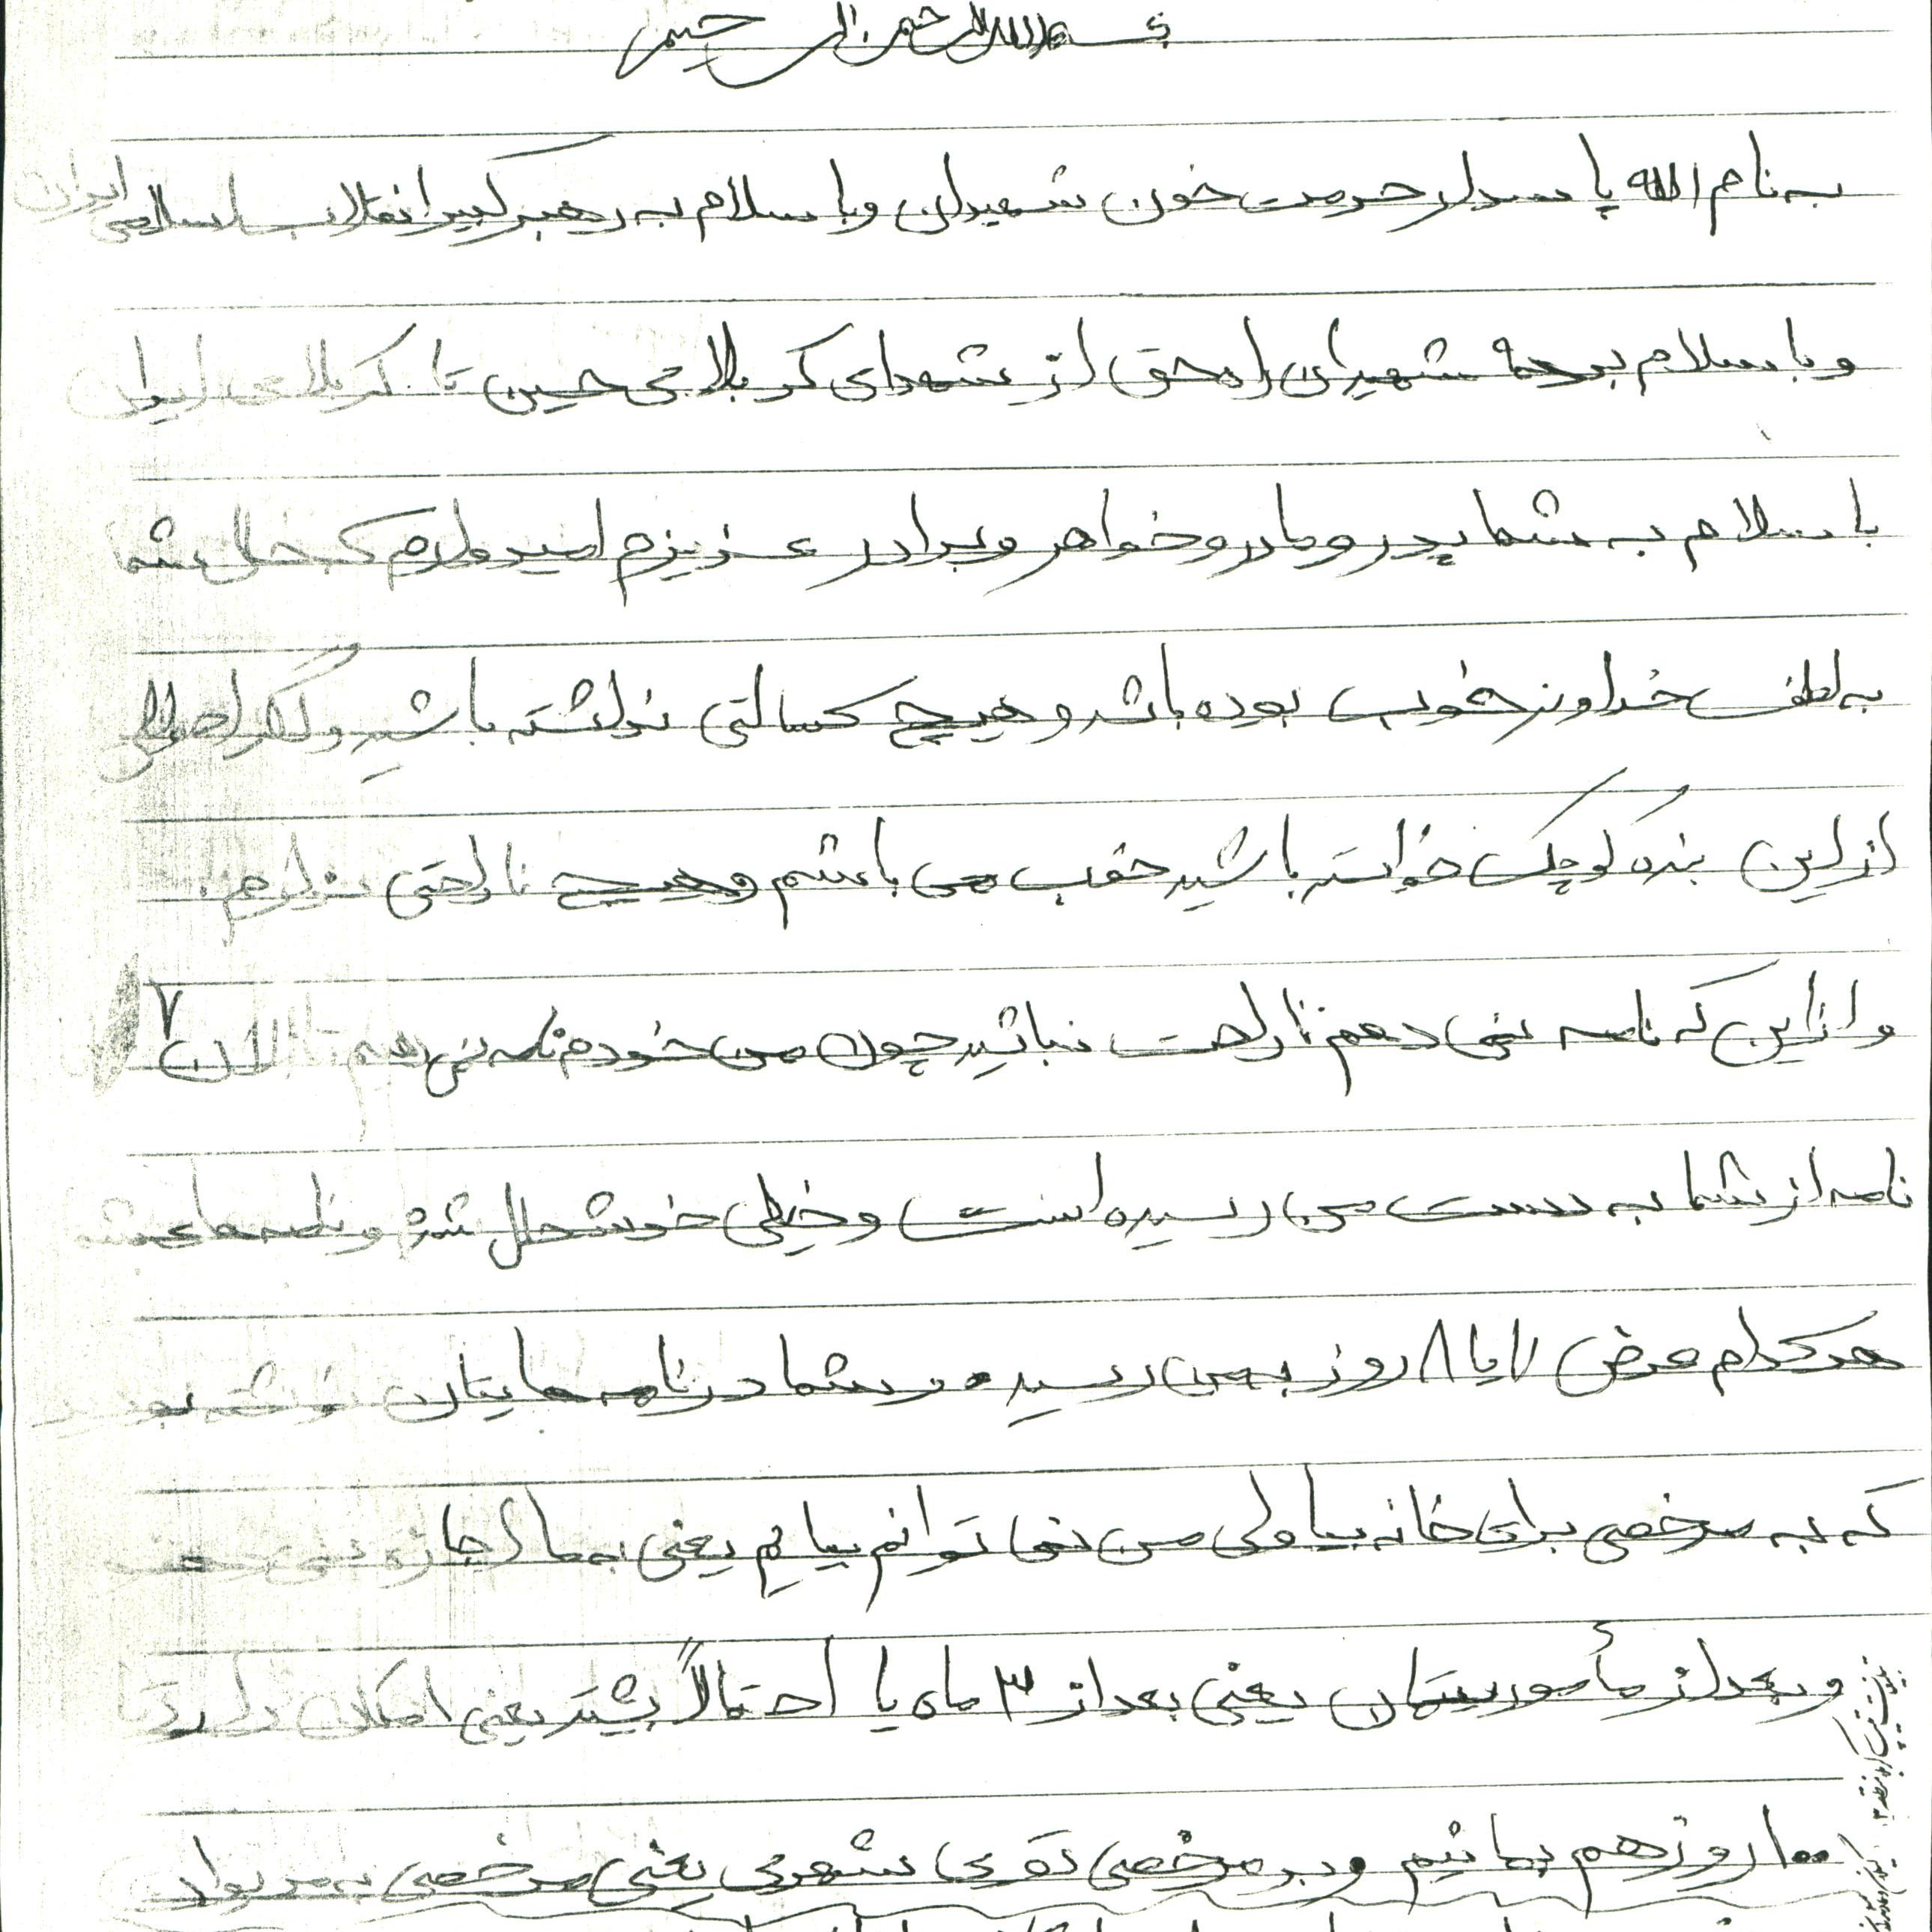 بسم الله الرحمن الرحیم
به نام الله پاسدار حرمت خون شهیدان و با سلام به رهبر کبیر انقلاب اسلامی ایران
و با سلام به همه شهیدان راه حق از شهدای کربلای حسین تا کربلای ایران
با سلام به شما پدر و مادر و خواهر و برادر عزیزم امیدوارم که حال شما
به لطف خداوند خوب بوده باشد و هیچ کسالتی نداشته باشید و اگر احوالی
از این بنده کوچک خواسته باشید خوب می باشم و هیچ ناراحتی ندارم.
و از این که نامه نمی دهم ناراحت نباشید چون من خودم نامه نمی دهم الان ۷
نامه از شما به دست من رسیده است و خیلی خوشحال شدم و نامه های شما
هر کدام عرض ۷ یا ۸ روز به من رسیده و شما در نامه هایتان نوشته بودید
که به مرخصی برای خانه بیا ولی من نمی توانم بیایم یعنی به ما اجازه نمی دهند
و بعد از مأموریتمان یعنی بعد از ۳ ماه یا احتمالاً بیشتر یعنی امکان دارد تا
۱۰۰ روز هم بمانیم و به مرخصی توی شهری یعنی مرخصی به مریوان